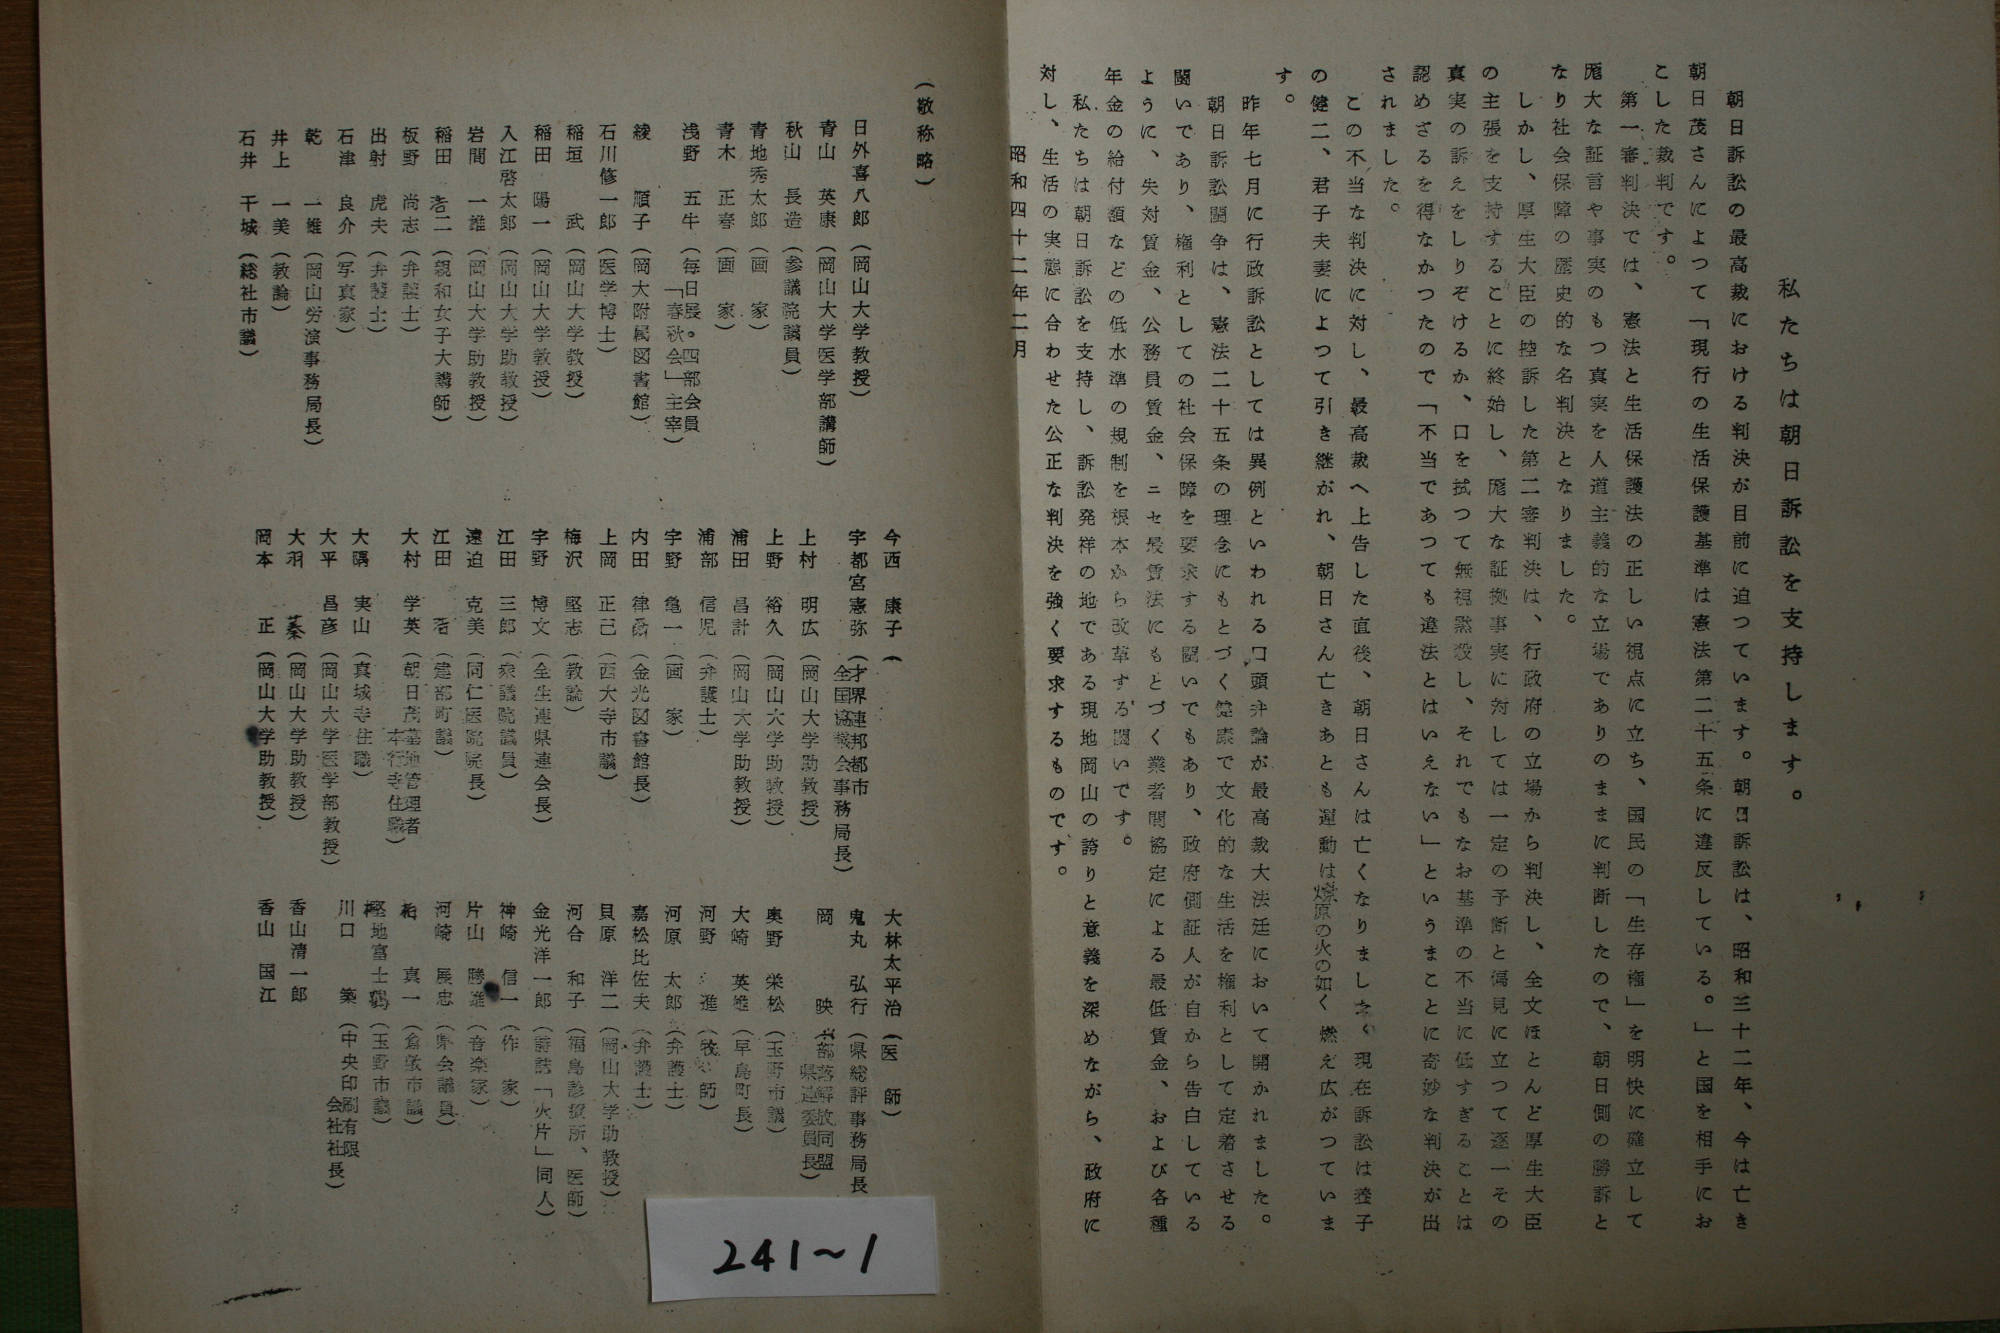 私たちは朝日訴訟を支持します。
朝日訴訟の最高裁における判決が目前に迫つています。朝日訴訟は、昭和三十二年、今は亡き
朝日茂さんによつて「現行の生活保護基準は憲法第二十五条に違反している。」と国を相手にお
こした裁判です。
第一審判決では、憲法と生活保護法の正しい視点に立ち、国民の「生存権」を明快に確立して
厖大な証言や事実のもつ真実を人道主義的な立場でありのままに判断したので、朝日側の勝訴と
なり社会保障の歴史的な名判決となりました。
しかし、厚生大臣の控訴した第二審判決は、行政府の立場から判決し、全文ほとんど厚生大臣
の主張を支持することに終始し、厖大な証拠事実に対しては一定の予断と偏見に立つて逐一その
真実の訴えをしりぞけるか、口を拭つて無視黙殺し、それでもなお基準の不当に低すぎることは
認めざるを得なかつたので「不当であつても違法とはいえない」というまことに奇妙な判決が出
されました。
この不当な判決に対し、最高裁へ上告した直後、朝日さんは亡くなりましたく現在訴訟は養子
の健二、君子夫妻によつて引き継がれ、朝日さん亡きあとも運動は燎原の火の如く燃え広がつていま
す。
昨年七月に行政訴訟としては異例といわれる口頭弁論が最高裁大法廷において開かれました。
朝日訴訟闘争は、憲法二十五条の理念にもとづく健康で文化的な生活を権利として定着させる
闘いであり、権利としての社会保障を要求する闘いでもあり、政府側証人が自から告白している
ように、失対賃金、公務員賃金、ニセ最賃法にもとづく業者間協定による最低賃金、および各種
年金の給付額などの低水準の規制を根本から改革する闘いです。
私たちは朝日訴訟を支持し、訴訟発祥の地である現地岡山の誇りと意義を深めながら、政府に
対し、生活の実態に合わせた公正な判決を強く要求するものです。
昭和四十二年二月
(敬称略)
日外喜八郎(岡山大学教授)
青山 英康(岡山大学医学部講師)
秋山 長造(参議院議員)
青地秀太郎(画 家)
青木 正春(画 家)
浅野 五牛(毎日展。四部会員
「春秋会」主宰)
綾 順子(岡大附属図書館)
石川修一郎(医学博士)
稲垣 武(岡山大学教授)
稲田 陽一(岡山大学教授)
入江啓太郎(岡山大学助教授)
岩間 一雄(岡山大学助教授)
稲田 浩二(親和女子大講師)
板野 尚志(弁護士)
出射 虎夫(弁護士)
石津 良介(写真家)
乾 一雄(岡山労演事務局長)
井上 一美(教諭)
石井 干城(総社市議)
今西 康子(
宇都宮憲弥(才界連邦都市
全国協議会事務局長)
上村 明広(岡山大学助教授)
上野 裕久(岡山大学助教授)
浦田 昌計(岡山大学助教授)
浦部 信児(弁護士)
宇野 亀一(画 家)
内田 律(金光図書館長)
上岡 正己(西大寺市議)
梅沢 堅志(教諭)
宇野 博文(全生連県連会長)
江田 三郎(衆議院議員)
遠迫 克美(同仁医院院長)
江田 浩(建部町議)
大村 学英(朝日茂墓地管理者
本行寺住職)
大隅 実山(真城寺住職)
大平 昌彦(岡山大学医学部教授)
大羽 蓁(岡山大学助教授)
岡本 正(岡山大学助教授)
大林太平治(医 師)
鬼丸 弘行(県総評事務局長
岡 映(部落解放同盟
県連委員長)
奥野 栄松(玉野市議)
大崎 英雄(早島町長)
河野 進(牧 師)
河原 太郎(弁護士)
嘉松比佐夫(弁護士)
貝原 洋二(岡山大学助教授)
河合 和子(福島診療所、医師)
金光洋一郎(詩誌「火片」同人)
神崎 信一(作 家)
片山 勝雄(音楽家)
河崎 展忠(県会議員)
柏 真一(倉敷市議)
堅地富士鶴(玉野市議)
川口 築(中央印刷有限
会社社長)
香山清一郎
香山 国江
241〜1